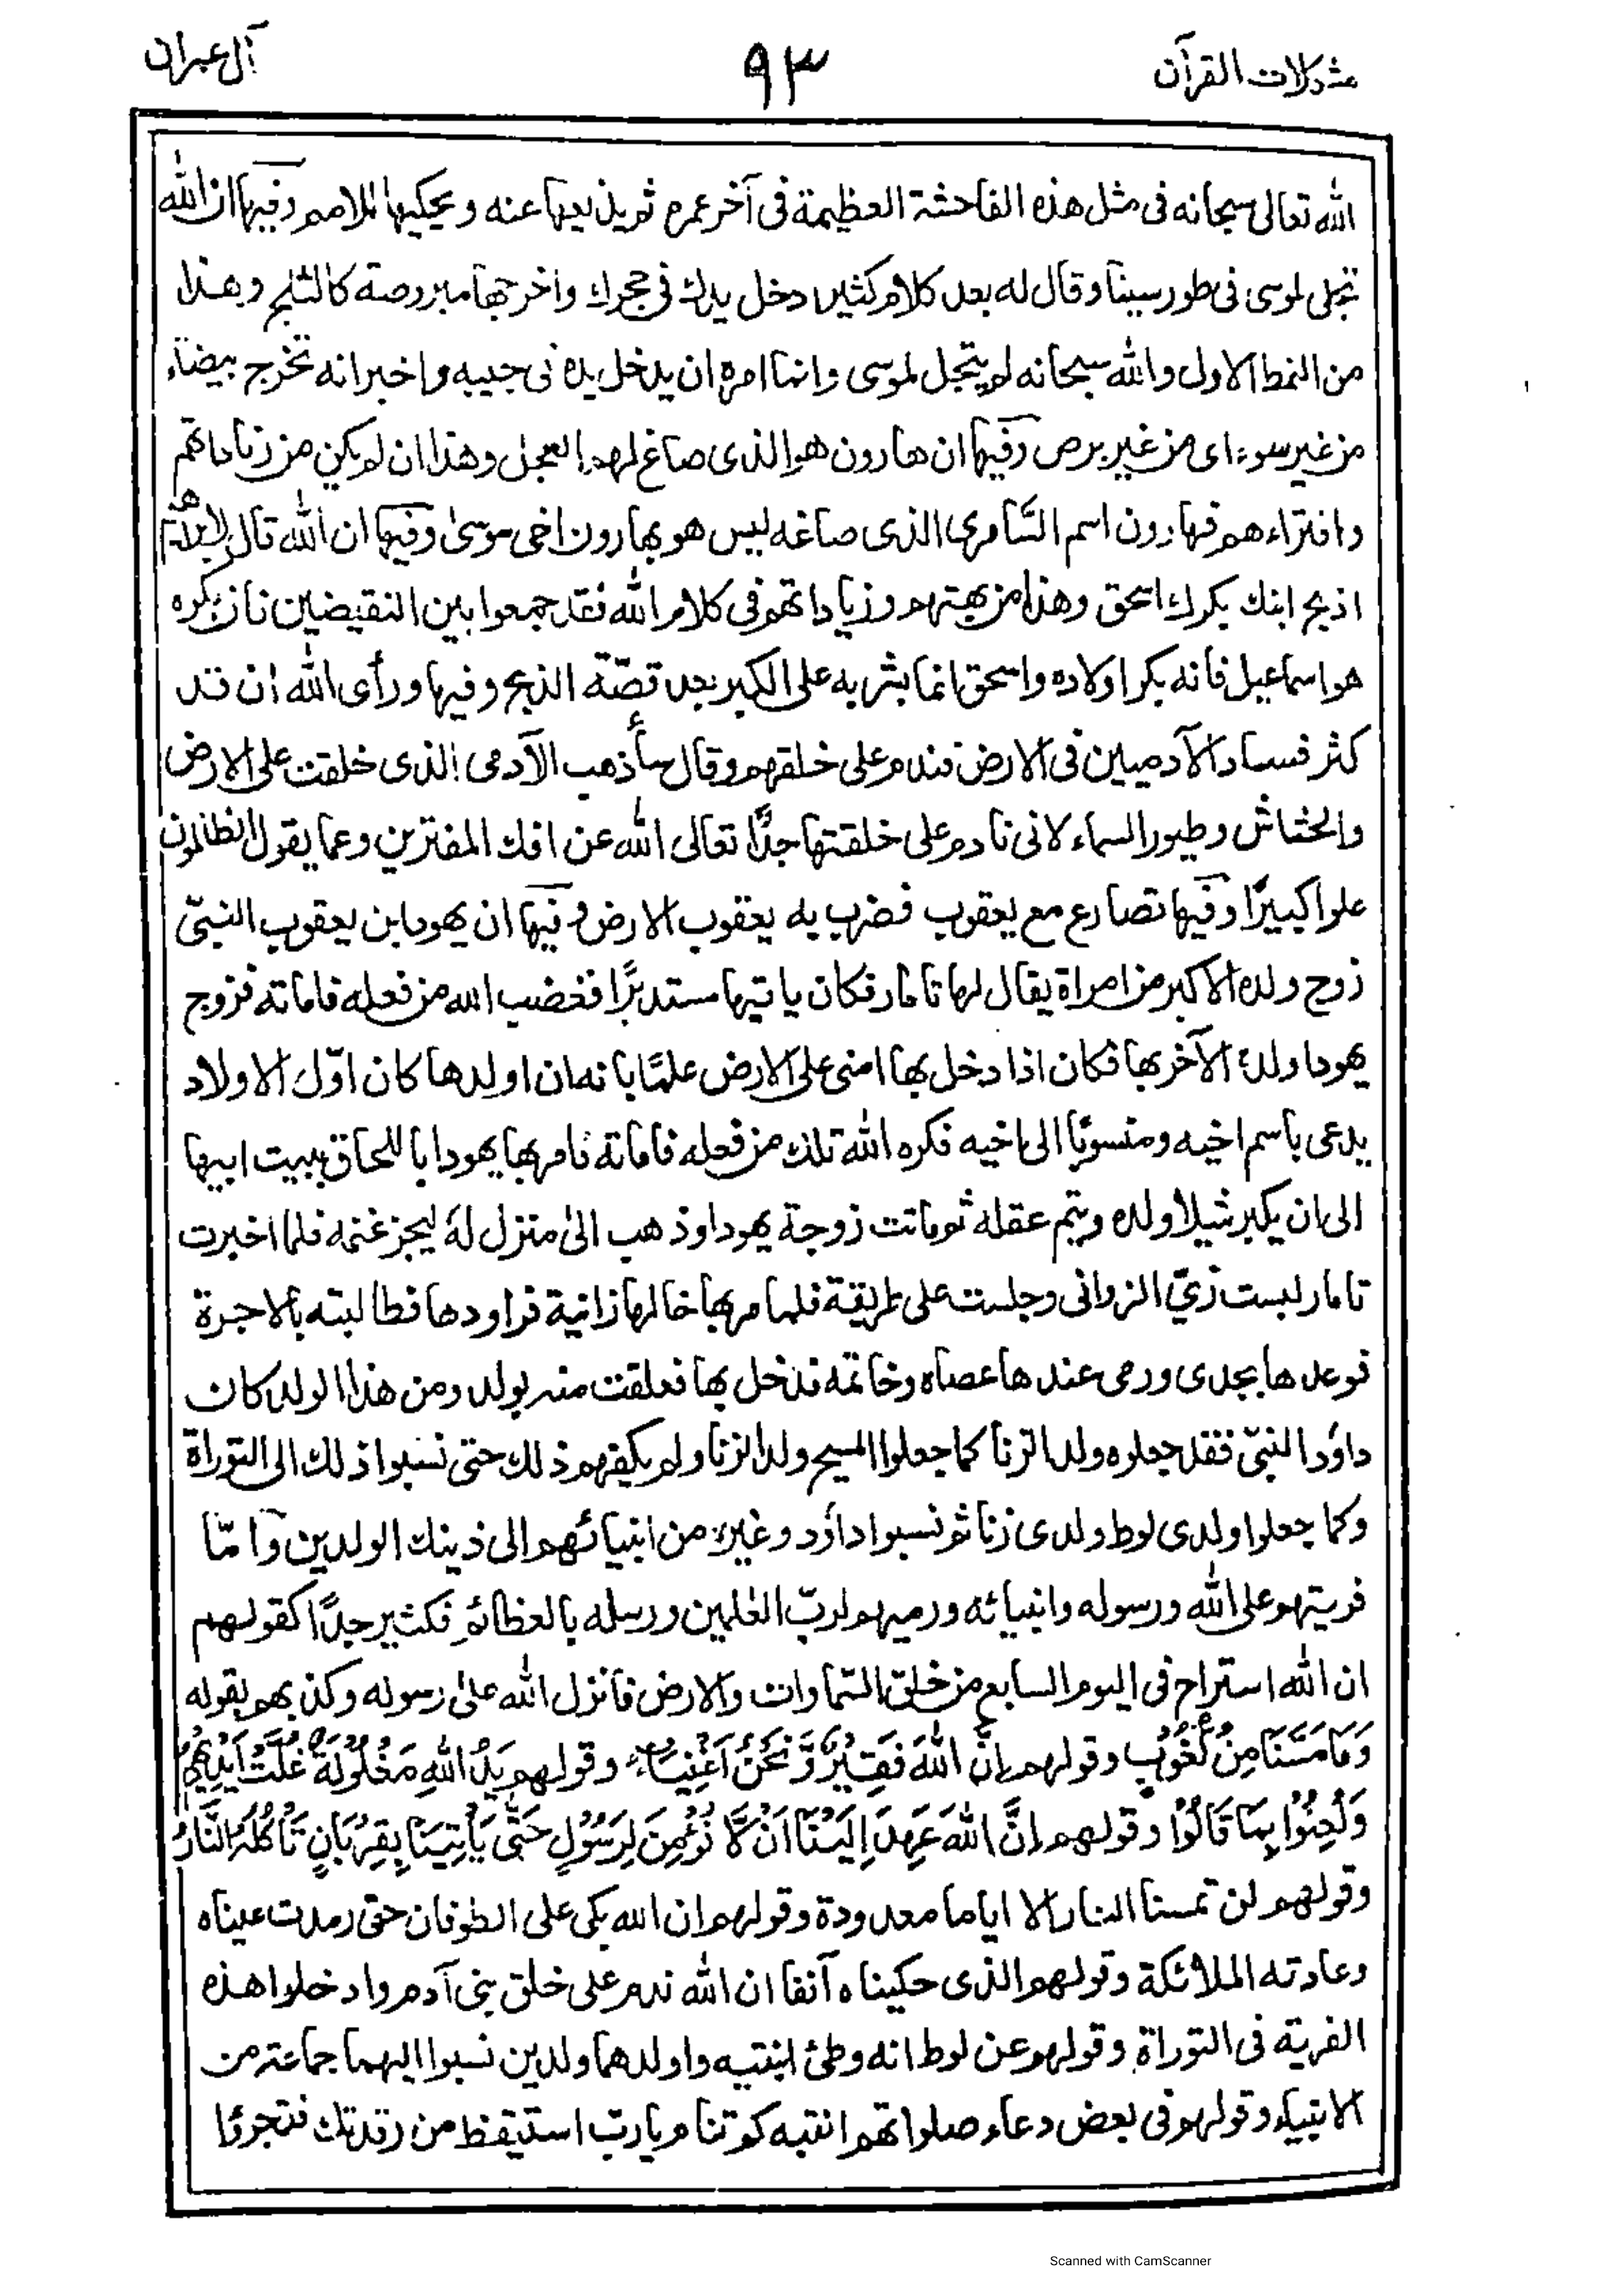 مشكلات القرآن
٩٣
آل عمران
الله تعالى سبحانه فى مثل هذه الفاحشة العظيمة فى آخر عمره ثم يذيعها عنه و يحكيها للامم وفيها ان الله
تجلى لموسى فى طور سيناء وقال له بعد كلام كثير ادخل يدك فى حجرك واخرجها مبروصة كالثلج وهذا
من النمط الاول والله سبحانه لم يتجل لموسى وانما امره ان يدخل يده فى جيبه واخبر انه تخرج بيضاء
من غير سوء اى من غير برص وفيها ان هارون هو الذى صاغ لهم العجل وهذا ان لم يكن من زياداتهم
وافتراءهم فهارون اسم السامرى الذى صاغه ليس هو بهارون اخى موسىٰ وفيها ان الله قال لابراهيم
اذبح ابنك بكرك اسحق وهذا من بهتهم وزياداتهم فى كلام الله فقد جمعوا بين النقيضين فان بكره
هو اسماعيل فانه بكر اولاده واسحق انما بشر به على الكبر بعد قصّة الذبح وفيها ورأى الله ان قد
كثر فساد الآدميين فى الارض فندم على خلقهم وقال سأذهب الآدمى الذى خلقت على الارض
والخشاش وطيور السماء لانى نادم على خلقتها جدًّا تعالى الله عن افك المفترين وعما يقول الظالمون
علوا كبيرًا وفيها تصارع مع يعقوب فضرب به يعقوب الارض وفيها ان يهودا بن يعقوب النبىّ
زوج ولده الاكبر من امراة يقال لها تامار فكان ياتيها مستدبرًا فغضب الله من فعله فاماته فزوج
يهودا ولده الآخر بها فكان اذا دخل بها امنى على الارض علمًا بانه ان اولدها كان اوّل الاولاد
يدعى باسم اخيه ومنسوبًا الى اخيه فكره الله تلك من فعله فاماته فامر بها يهودا باللحاق ببيت ابيها
الى ان يكبر شيلا ولده ويتم عقله ثم ماتت زوجة يهودا وذهب الىٰ منزل له ليجز غنمه فلما اخبرت
تامار لبست زىّ الزوانى وجلست على طريقة فلما مر بها خالها زانية فراودها فطالبته بالاجرة
فوعدها بجدى ورمى عندها عصاه وخاتمه فدخل بها فعلقت منه بولد ومن هذا الولد كان
داؤد النبىّ فقد جعلوه ولد الزنا كما جعلوا المسيح ولد الزنا ولم يكفهم ذلك حتى نسبوا ذلك الى التوراة
وكما جعلوا ولدى لوط ولدى زنا ثم نسبوا داؤد وغيره من انبيائهم الى ذينك الولدين وأمّا
فريتهم على الله ورسوله وانبيائه ورميهم لربّ العٰلمين ورسله بالعظائم فكثير جدًّا كقولهم
ان الله استراح فى اليوم السابع من خلق السّماوات والارض فانزل الله علىٰ رسوله وكذبهم بقوله
وَمَا مَسَّنَا مِنْ لُّغُوْبٍ وقولهم اِنَّ اللهَ فَقِيْرٌ وَّنَحْنُ اَغْنِيَاءُ وقولهم يَدُ اللهِ مَغْلُوْلَةٌ غُلَّتْ اَيْدِيْهِمْ
وَلُعِنُوْا بِمَا قَالُوْا وقولهم اِنَّ اللهَ عَهِدَ اِلَيْنَا اَنْ لَّا نُؤْمِنَ لِرَسُوْلٍ حَتّٰى يَأْتِيَنَا بِقِرْبَانٍ تَأْكُلُهُ النَّارُ
وقولهم لن تمسنا النار الا اياما معدودة وقولهم ان الله بكى على الطوفان حتى رمدت عيناه
وعادته الملائكة وقولهم الذى حكيناه آنفا ان الله ندم على خلق بنى آدم وادخلوا هذه
الفرية فى التوراة وقولهم عن لوط انه وطئ ابنتيه واولدهما ولدين نسبوا اليهما جماعة من
الانبياء وقولهم فى بعض دعاء صلواتهم انتبه كم تنام يارب استيقظ من رقدتك فتجرؤا
Scanned with CamScanner